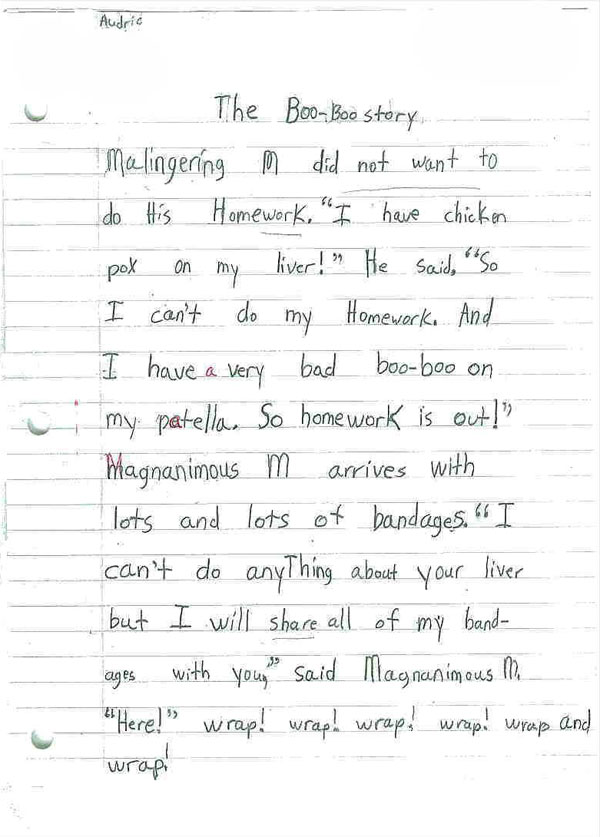 Audric
The Boo-Boo story
Malingering M did not want to
do His Homework. "I have chicken
pox on my liver!" He said, "So
I can't do my Homework. And
I have a very bad boo-boo on
my patella. So homework is out!"
Magnanimous M arrives with
lots and lots of bandages. "I
can't do anyThing about your liver
but I will share all of my band-
ages with you," said Magnanimous M.
"Here!" wrap! wrap! wrap! wrap! wrap and
wrap!